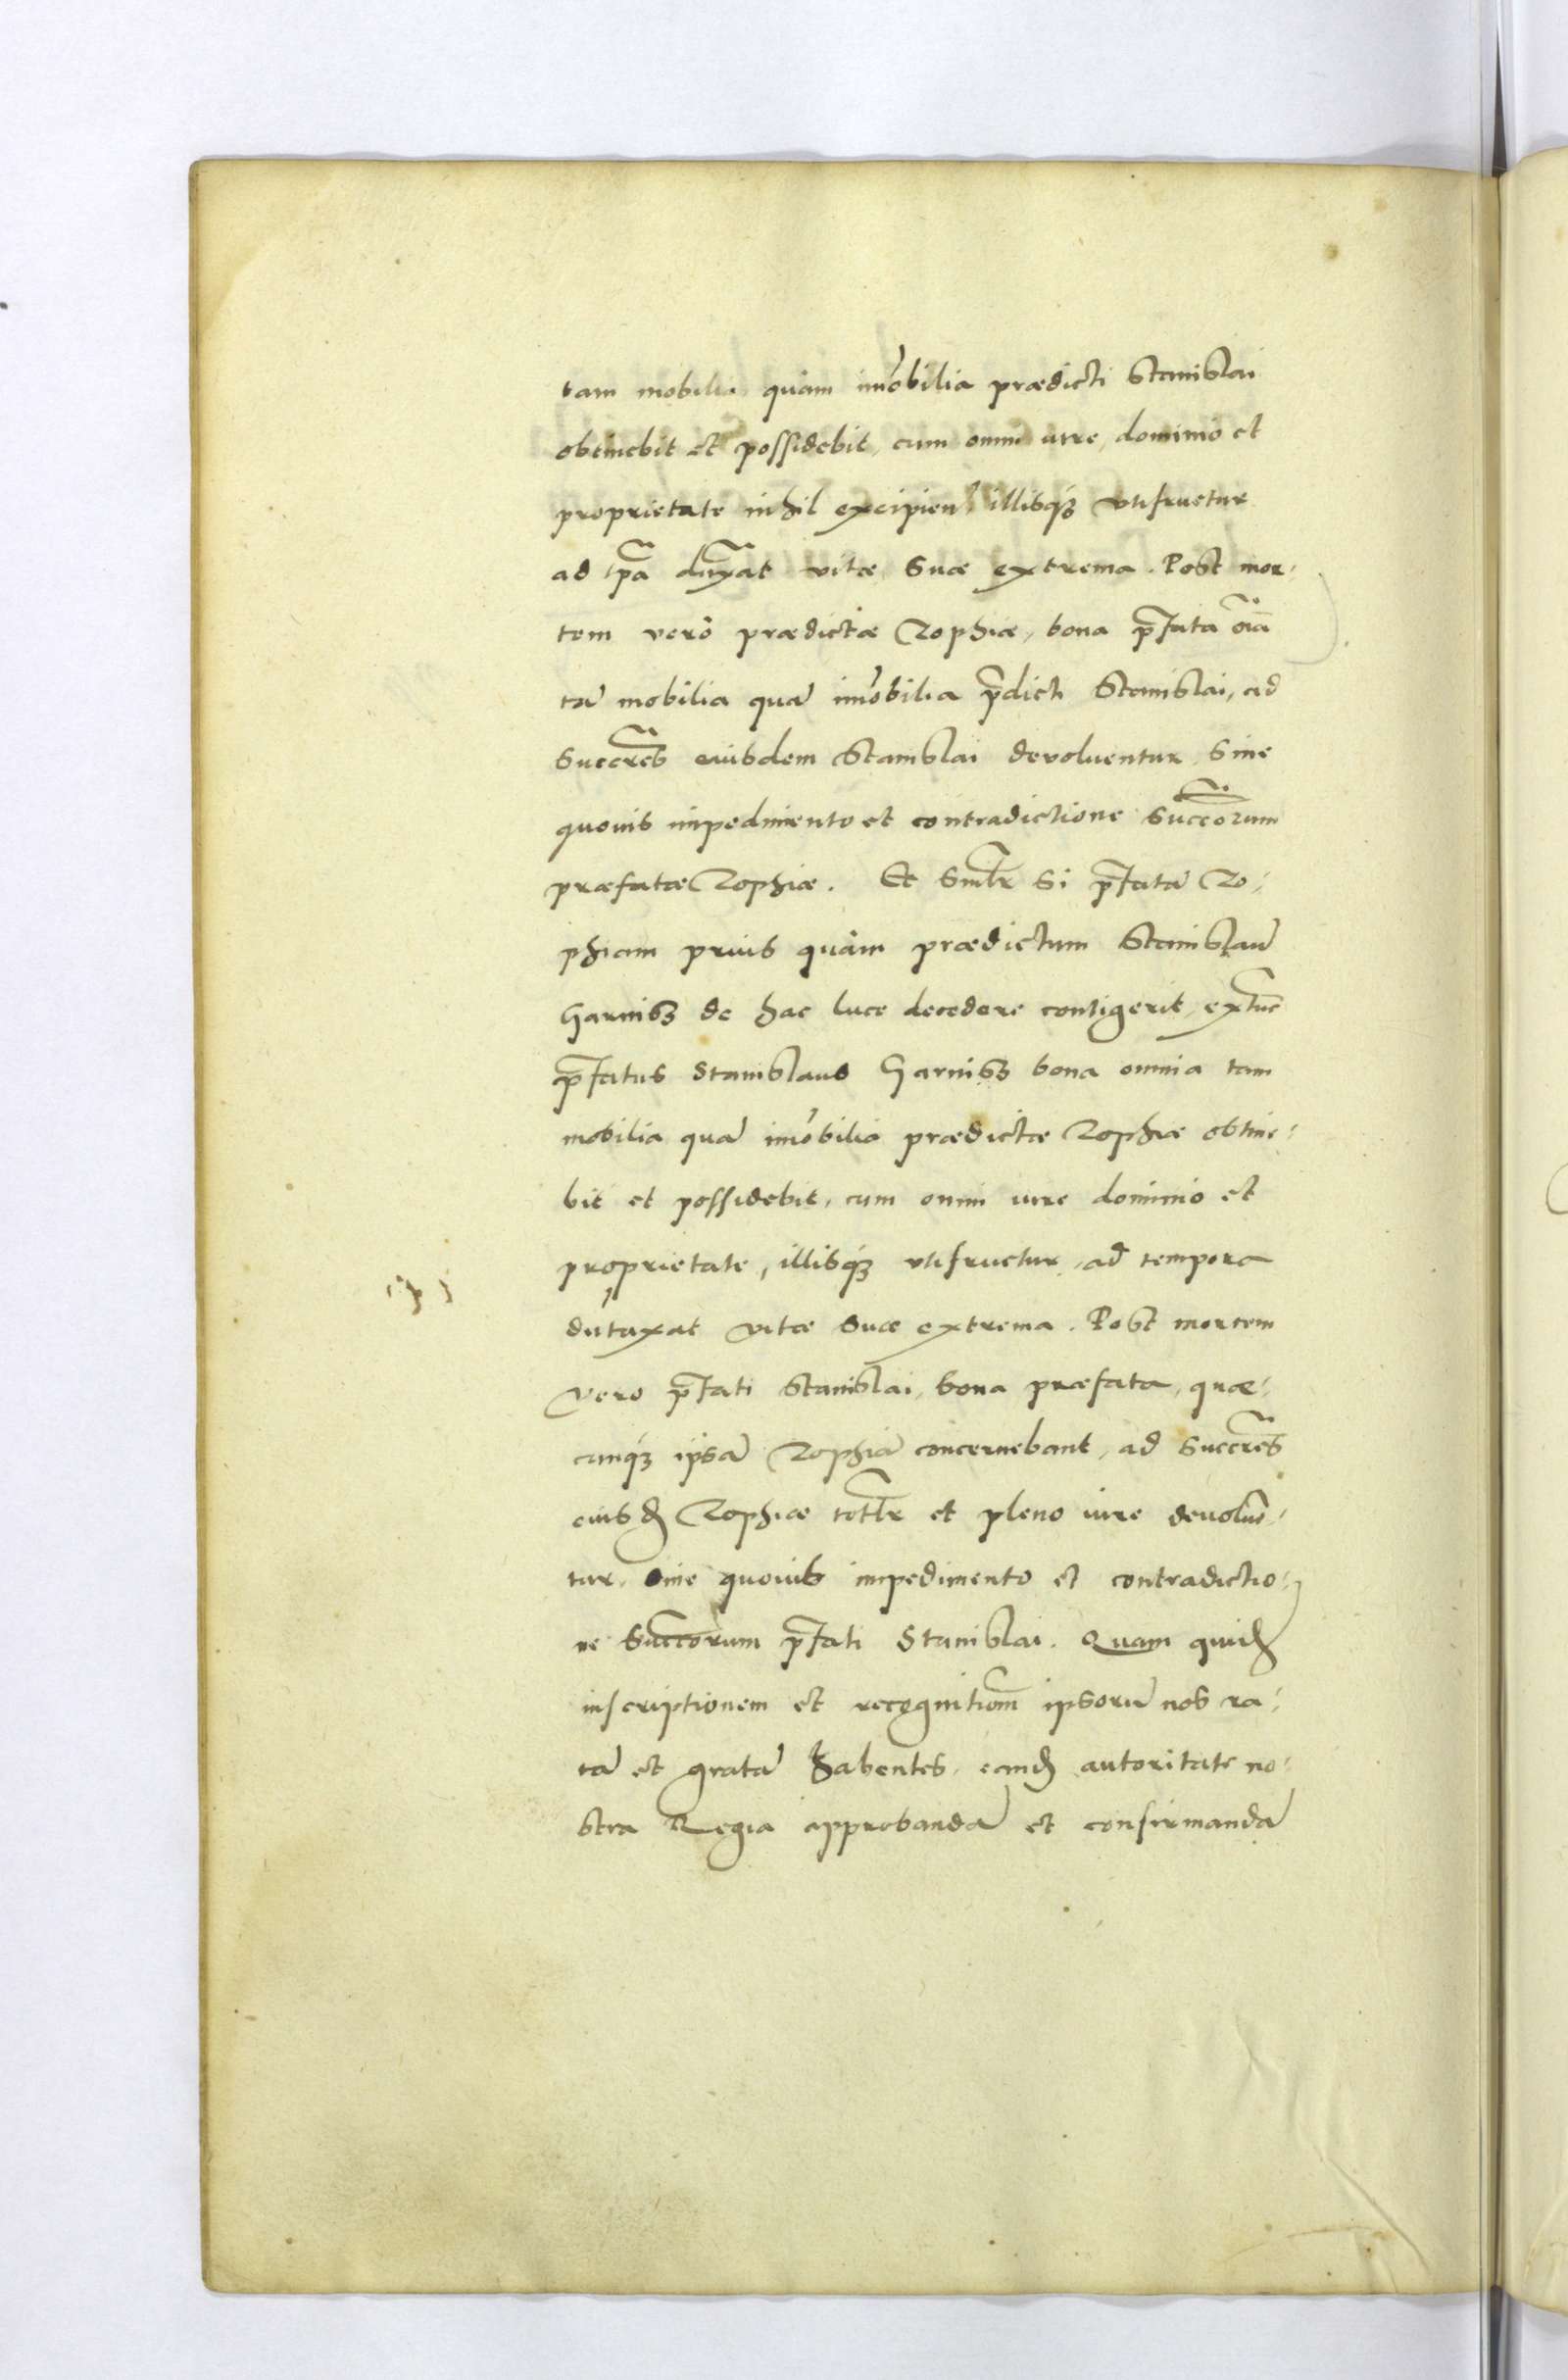 tam mobilia quàm im̃obilia prædicti Stanislai
obtinebit et possidebit, cum omni iure, dominio et
proprietate nihil excipien̄ illisq́ꝫ vtifruetur
ad tp̃a dũxat vitæ suæ extrema. Post mor-
tem verò prædictæ Zophiæ, bona p̃fata oĩa
tã mobilia quã im̃obilia p̃dicti Stanislai, ad
Succr̃es eiusdem Stanislai devoluentur, Sine
quouis impedimento et contradictione Succõrum
præfatæ Zophiæ. Et Sml̃r Si p̃fatã Zo-
phiam prius quàm prædictum Stanislaũ
Harnisz de hac luce decedere contigerit, extũc
p̃fatus Stanislaus Harnisz bona omnia tam
mobilia quã im̃obilia prædictæ Zophiæ obtine-
bit et possidebit, cum omni iure dominio et
proprietate, illisq́ꝫ vtifruetur, ad tempora
dũtaxat vitæ suæ extrema. Post mortem
Vero p̃fati Stanislai, bona præfata, quæ-
cunq́ꝫ ipsã Zophiã concernebant, ad Succr̃es
eiusd̃ Zophiæ totl̃r et pleno iure deuoluẽ-
tur, Sine quouis impedimento et contradictio-
ne Succõrum p̃fati Stanislai. Quam quid̃
inscriptionem et recognitiom̃ ipsorũ nos ra-
tã et gratã habentes, eand̃ autoritate no-
stra Regia approbandã et confirmandã